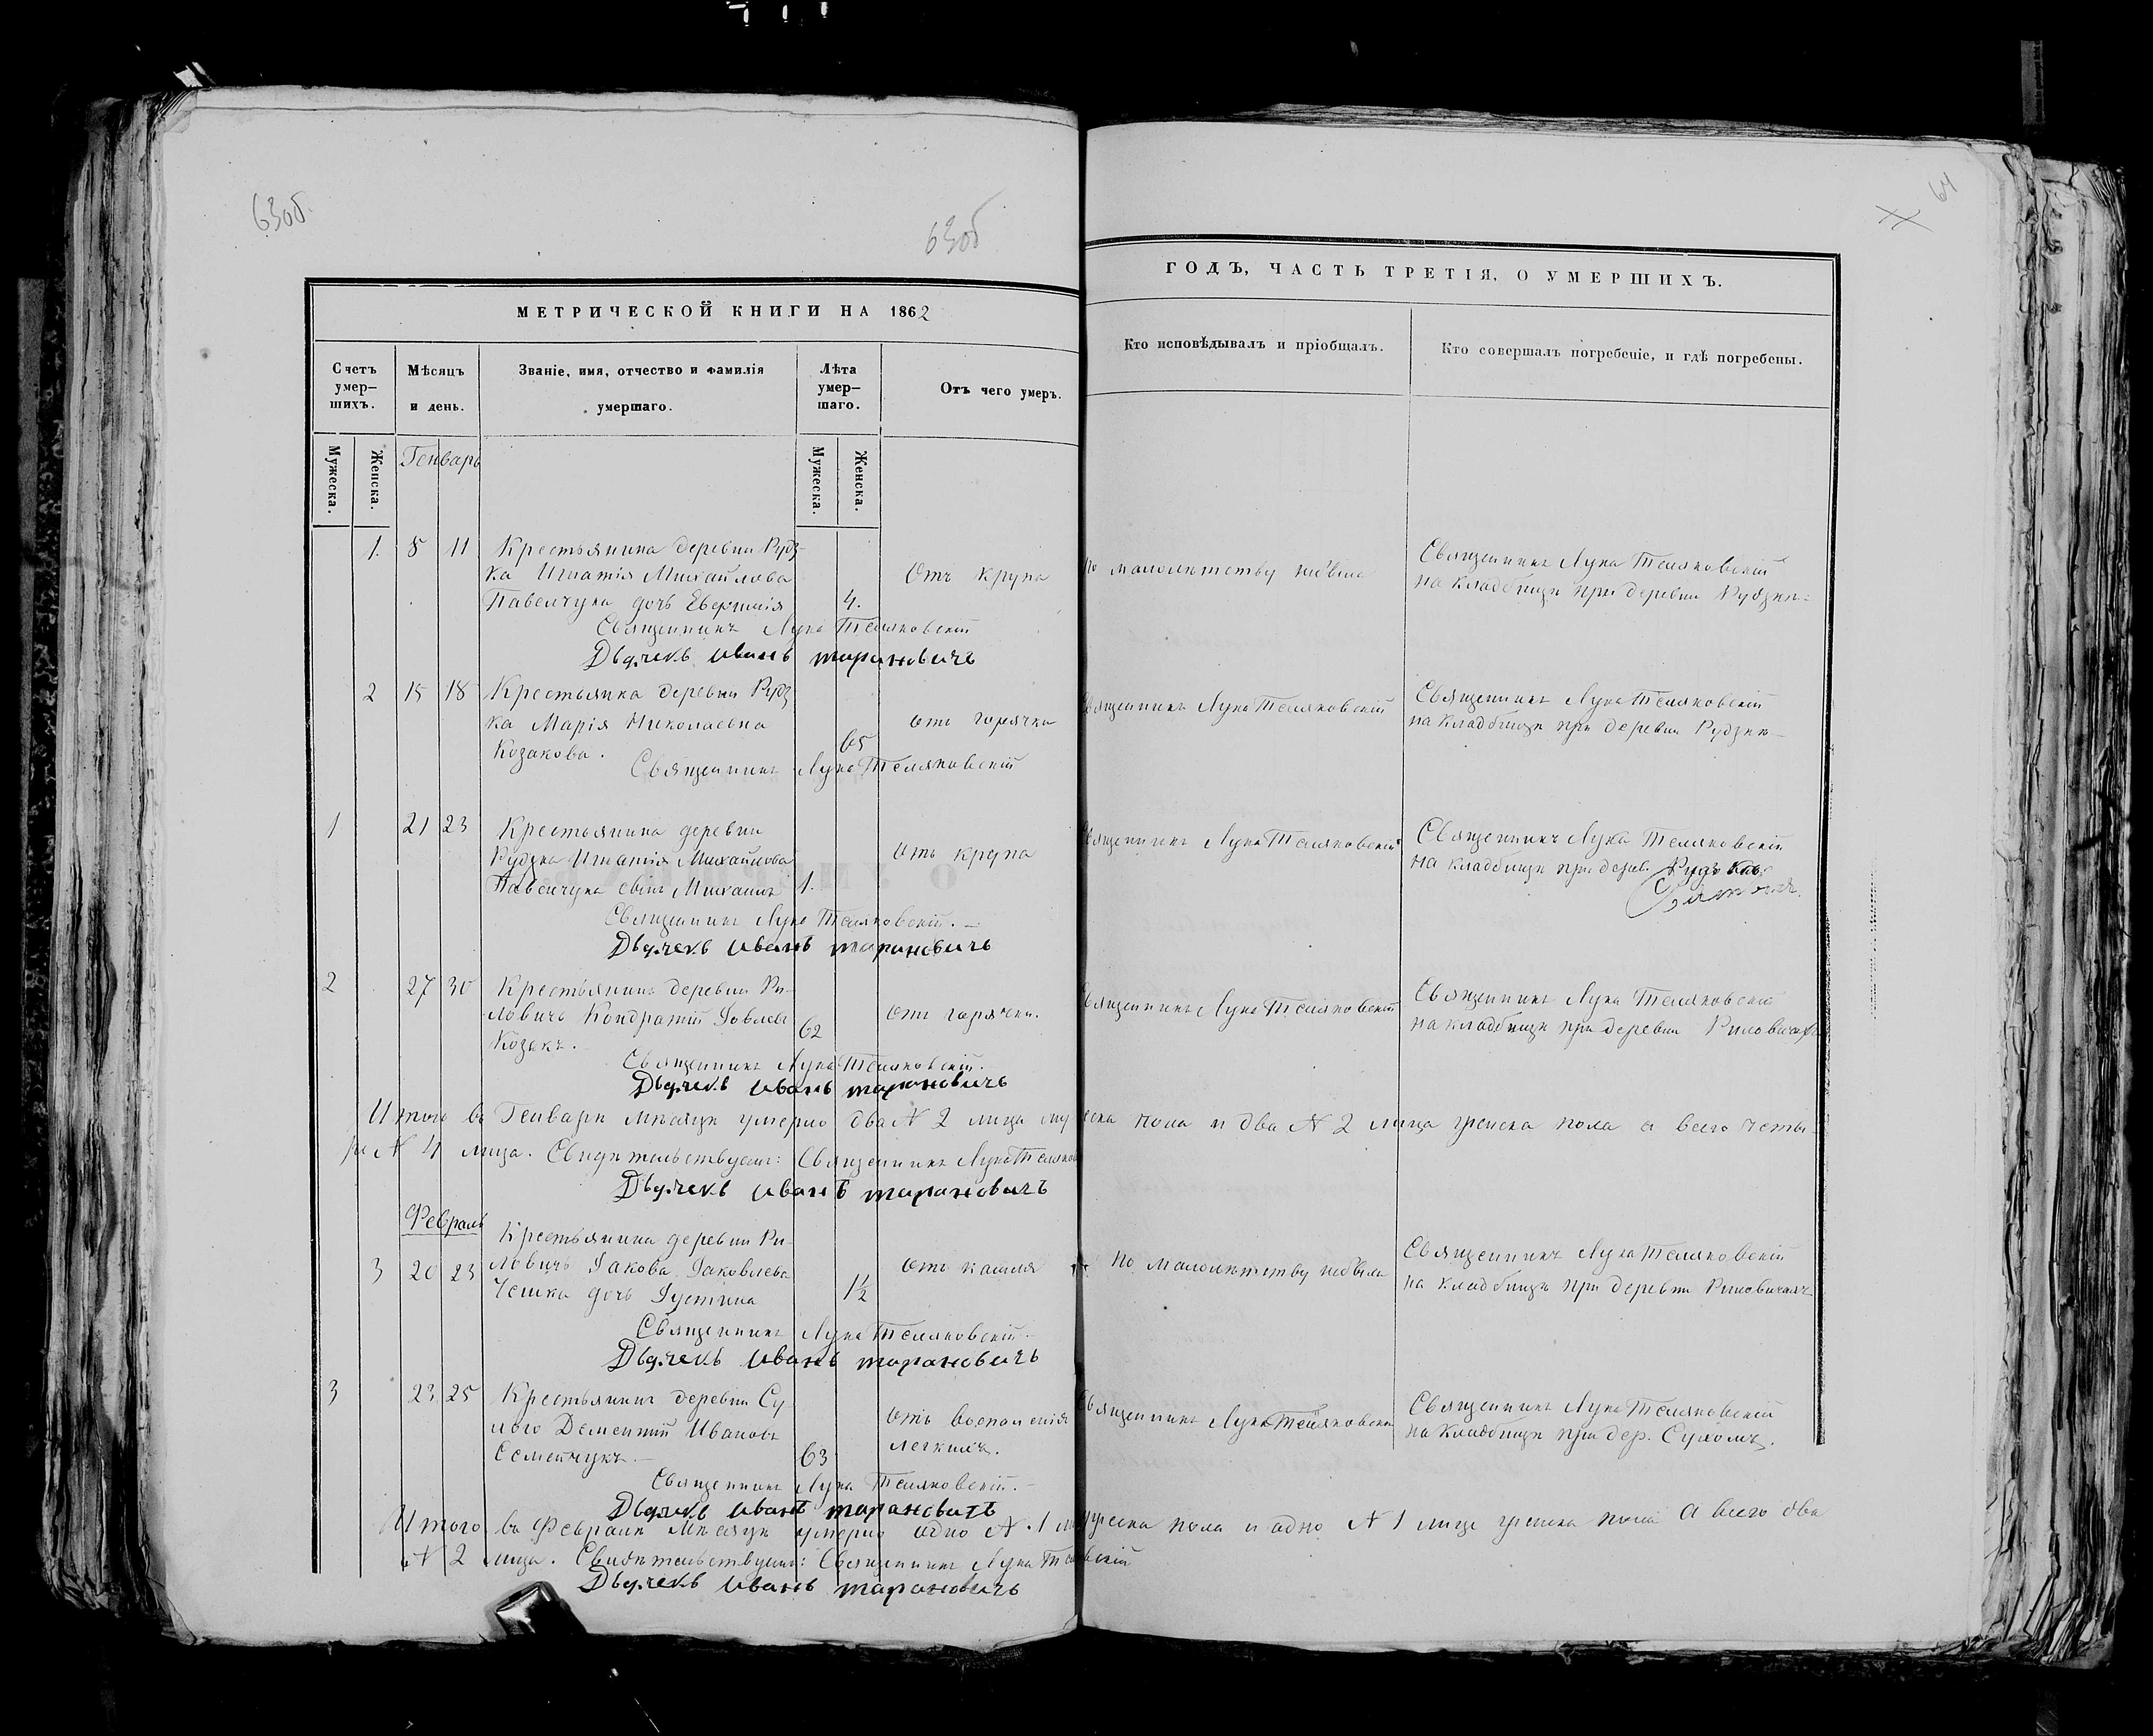 63об.
63об
64
МЕТРИЧЕСКОЙ КНИГИ НА 1862
ГОДЪ, ЧАСТЬ ТРЕТІЯ, О УМЕРШИХЪ.
Счетъ умер–шихъ.
Мѣсяцъ и день.
Званіе, имя, отчество и фамилія умершаго.
Лѣта умер–шаго.
Отъ чего умеръ.
Кто исповѣдывалъ и пріобщалъ.
Кто совершалъ погребеніе, и гдѣ погребены.
Мужеска.
Женска.
Генварь
Мужеска.
Женска.
1. 8 11 Крестьянина деревни Рудз-
ка Игнатія Михайлова
Павелчука дочь 4.
Отъ крупа
По малолѣтству не была
Священникъ Лука Теляковскій
на кладбищѣ при деревни Рудзкѣ
Священникъ Лука Теляковскій
Дьячекъ Иванъ Тарановичъ
2 15 18 Крестьянка деревни Рудз
ка Марія Николаевна
Козакова. 65
отъ горячки
Священникъ Лука Теляковскій
Священникъ Лука Теляковскій
на кладбищѣ при деревни Рудзкѣ
Священникъ Лука Теляковскій
1 21 23 Крестьянина деревни
Рудзка Игнатія Михайлова
Павелчука сынъ Михаилъ 1.
Отъ крупа
Священникъ Лука Теляковскій
Священникъ Лука Теляковскій
на кладбищѣ при дерев.
Священникъ Лука Теляковскій.
Дьячекъ Иванъ Тарановичъ
2 27 30 Крестьянинъ деревни Ри-
ловичъ Кондратій Іовлевъ
Козакъ. 62
Отъ горячки.
Священникъ Лука Теляковскій
Священникъ Лука Теляковскій
на кладбищѣ при деревни Риловичахъ
Священникъ Лука Теляковскій.
Дьячекъ Иванъ Тарановичъ
Итого въ Генварѣ мѣсяцѣ умерло два N 2 лица мужеска пола и два N 2 лица женска пола а всего четы-
ре N 4 лица. Свидѣтельствуемъ: Священникъ Лука Теляков
Дьячекъ Иванъ Тарановичъ
Февраль
Крестьянина деревни Ри-
3 20 23 ловичъ Іакова Іаковлева
дочь Іустина 1½
Отъ кашля
По малолѣтству не была
Священникъ Лука Теляковскій
на кладбищѣ при деревни Риловичахъ
Священникъ Лука Теляковскій
Дьячекъ Иванъ Тарановичъ
3 23 25 Крестьянинъ деревни Су
Дементій Ивановъ
Семенчукъ. 63
Отъ воспаленія
легкихъ.
Священникъ Лука Теляковскій
Священникъ Лука Теляковскій
на кладбищѣ при дер.
Священникъ Лука Теляковскій.
Дьячекъ Иванъ Тарановичъ
Итого въ Февралѣ мѣсяцѣ умерло одно N. 1 мужеска пола и одно N 1 лице женска пола а всего два
N 2 лица. Свидѣтельствуемъ: Священникъ Лука
Дьячекъ Иванъ Тарановичъ